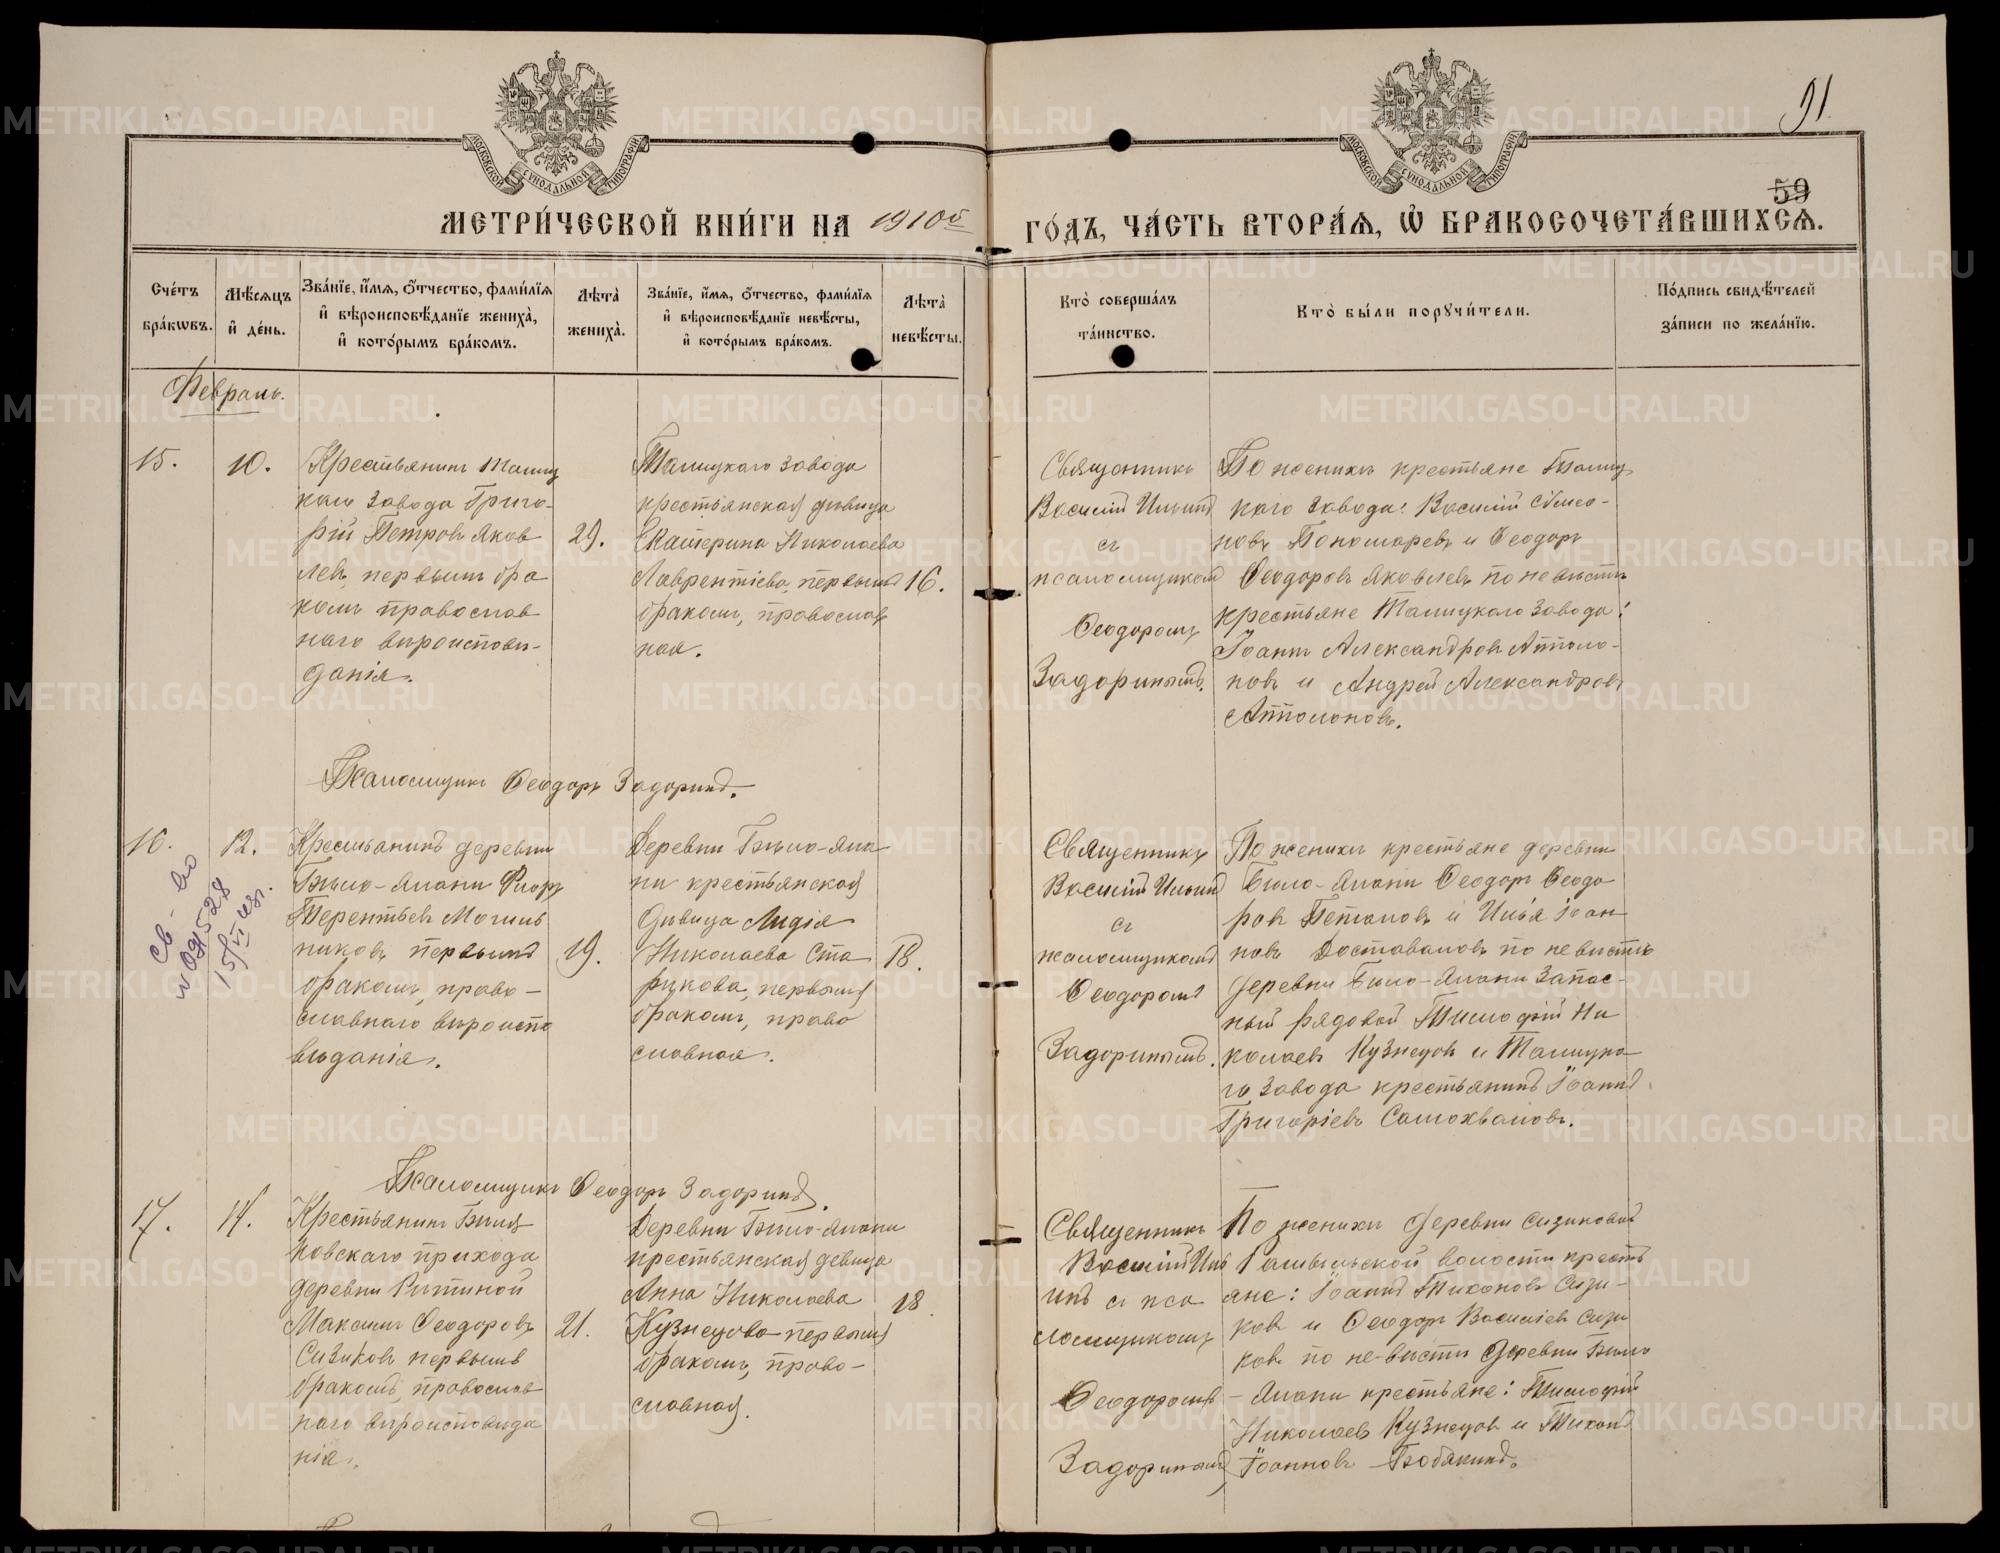 91
59
МОСКОВСКОЙ СѴНОДАЛЬНОЙ ТИПОГРАФІИ
МОСКОВСКОЙ СѴНОДАЛЬНОЙ ТИПОГРАФІИ
МЕТРИ́ЧЕСКОЙ КНИ́ГИ НА 1910й ГО́ДЪ, ЧА́СТЬ ВТОРА́Я, Ѡ҆ БРАКОСОЧЕТА́ВШИХСЯ.
Сче́тъ бра́кѡвъ.
Мѣ́сяцъ и҆ де́нь.
Зва́нїе, и҆́мя, о҆́тчество, фами́лїя и҆ вѣроисповѣ́данїе жениха̀, и҆ кото́рымъ бра́комъ.
Лѣта̀ жениха̀.
Зва́нїе, и҆́мя, о҆́тчество, фами́лїя и҆ вѣроисповѣ́данїе невѣ́сты, и҆ кото́рымъ бра́комъ.
Лѣта̀ невѣ́сты.
Кто̀ соверша́лъ та́инство.
Кто̀ бы́ли порꙋчи́тели.
По́дпись свидѣ́телей за́писи по жела́нїю.
Февраль.
15.
10.
Крестьянинъ Талиц
каго завода Григо-
рій Петровъ Яков
левъ, первымъ бра
комъ православ
наго вѣроисповѣ-
данія.
29.
Талицкаго завода
крестьянская дѣвица
Екатерина Николаева
Лаврентіева, первымъ
бракомъ, православ
ная.
16.
Священникъ
Василій Ильинъ
съ
псаломщикомъ
Ѳеодоромъ
Задоринымъ.
По женихѣ крестьяне Талиц
каго завода: Василій Сѵмео-
новъ Пономаревъ и Ѳеодоръ
Ѳеодоровъ Яковлевъ по невѣстѣ
крестьяне Талицкаго завода:
Іоаннъ Александровъ Апполо-
новъ и Андрей Александровъ
Апполоновъ.
Псаломщикъ Ѳеодоръ Задоринъ.
16.
12.
св-во
№ 091528
15/VI
Крестьянинъ деревни
Бѣло-Ялани Флоръ
Терентьевъ Могиль
никовъ, первымъ
бракомъ, право-
славнаго вѣроиспо
вѣданія.
19.
Деревни Бѣло-Яла
ни крестьянская
дѣвица Лидія
Николаева Ста
рикова, первымъ
бракомъ, право
славная.
18.
Священникъ
Василій Ильинъ
съ
псаломщикомъ
Ѳеодоромъ
Задоринымъ.
По женихѣ крестьяне деревни
Бѣло-Ялани Ѳеодоръ Ѳеодо
ровъ Потаповъ и Илья Іоан
новъ Доставаловъ по невѣстѣ
деревни Бѣло-Ялани запас-
ный рядовой Тимофій Ни
колаевъ Кузнецовъ и Талицка
го завода крестьянинъ Іоаннъ
Григоріевъ Самохваловъ.
Псаломщикъ Ѳеодоръ Задоринъ.
17.
14.
Крестьянинъ
ковскаго прихода
деревни
Максимъ Ѳеодоровъ
Сизиковъ первымъ
бракомъ, православ
наго вѣроисповѣда
нія.
21.
Деревни Бѣло-Ялани
крестьянская девица
Анна Николаева
Кузнецова первымъ
бракомъ, право-
славная.
18
Священникъ
Василій Иль
инъ съ пса
ломщикомъ
Ѳеодоромъ
Задоринымъ
По женихѣ деревни Сизиковой
волости кресть
яне: Іоаннъ Тихоновъ Сизи-
ковъ и Ѳеодоръ Василіевъ Сизи
ковъ по невѣстѣ деревни Бѣло
-Ялани крестьяне: Тимофій
Николаевъ Кузнецовъ и Тихонъ
Іоанновъ Бобякинъ.